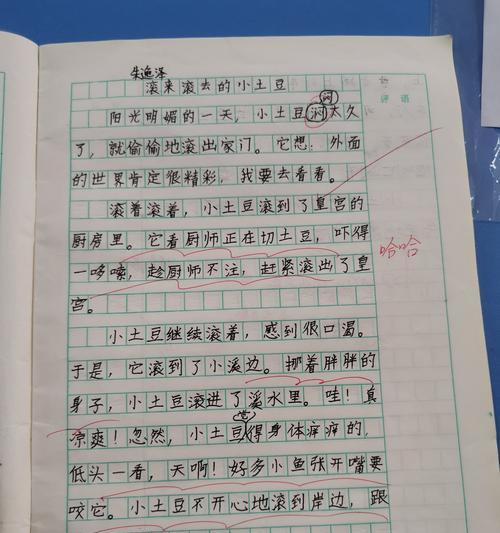 朱迤泽
滚来滚去的小土豆
闷
阳光明媚的一天，小土豆闷太久
了，就偷偷地滚出家门。它想：外面
的世界肯定很精彩，我要去看看。
滚着滚着，小土豆滚到了皇宫的
厨房里。它看厨师正在切土豆，吓得
一哆嗦，趁厨师不注，赶紧滚出了皇
宫。
哈哈
小土豆继续滚着，感到很口渴。
于是，它滚到了小溪边。挪着胖胖的
身子，小土豆滚进了溪水里。哇！真
凉爽！忽然，小土豆觉得身体痒痒的，
低头一看，天啊！好多小鱼张开嘴要
咬它。小土豆不开心地滚到岸边，跟
评语